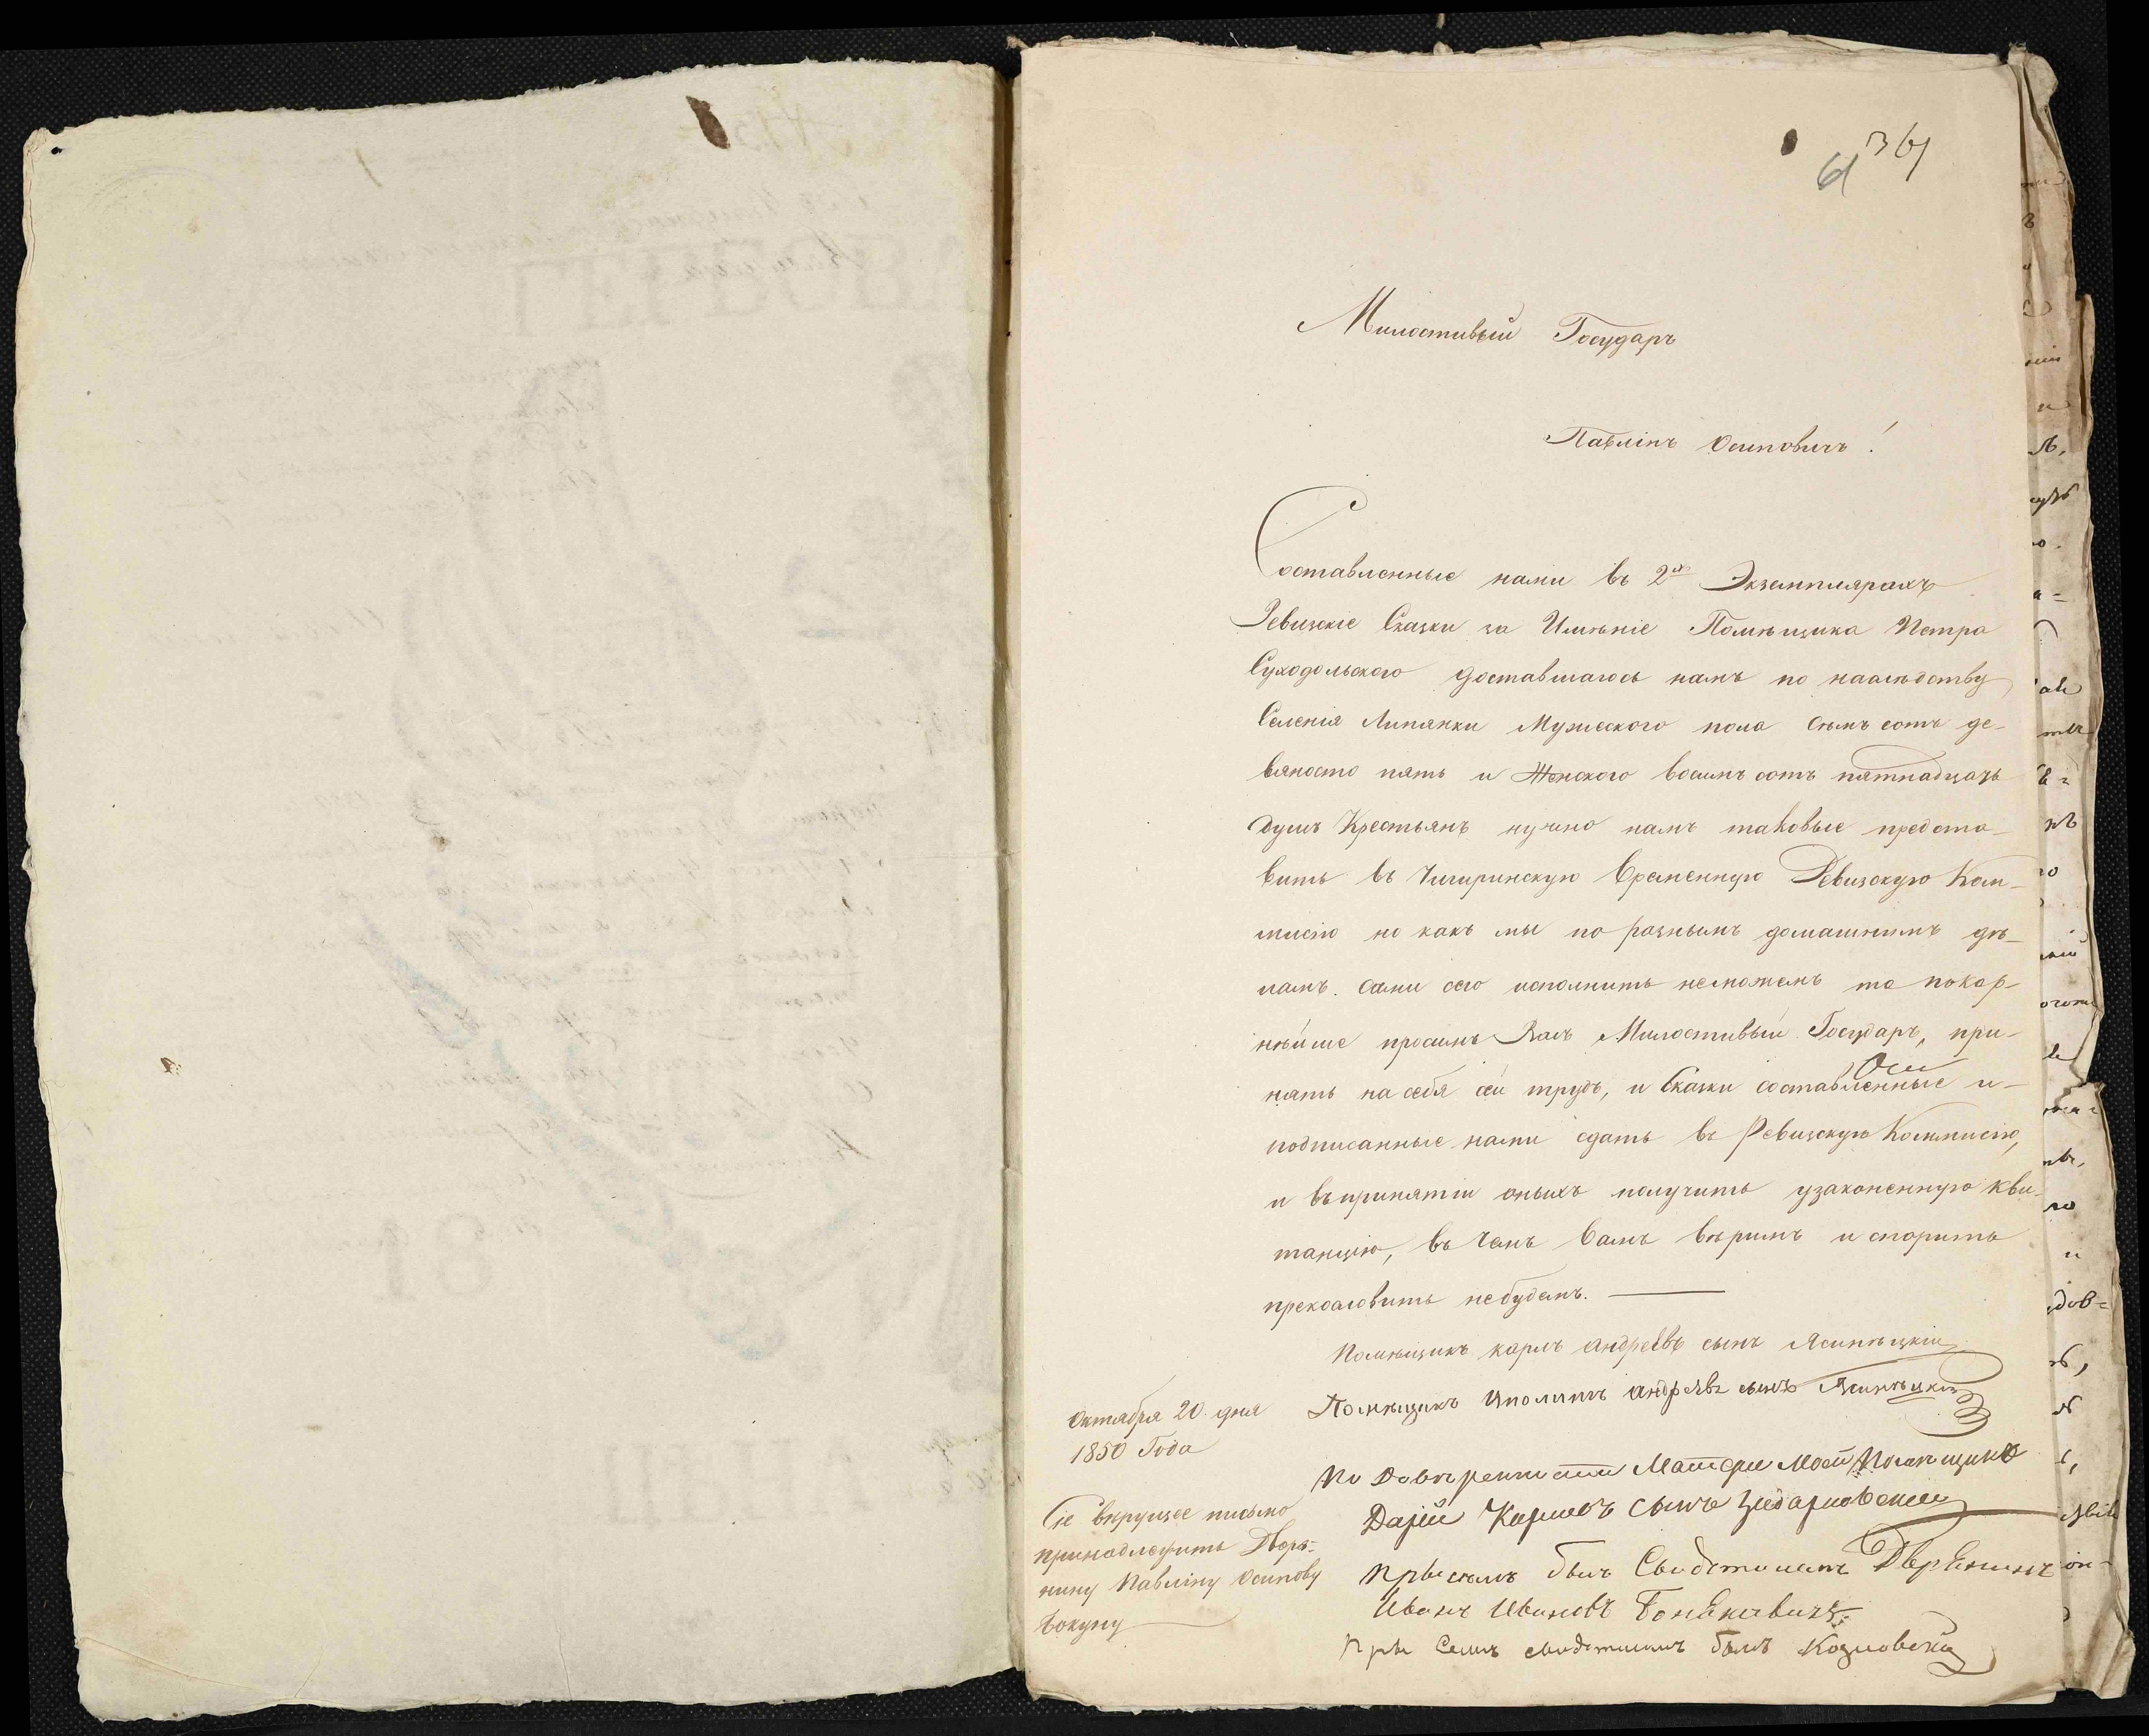 61 361
Милостивый Государь
Павлинъ Осиповичъ!
Составленные нами въ 2хъ Экземплярахъ
Ревизскіе Сказки за Имѣніе Помѣщика Петра
Суходольского доставшагося намъ по наслѣдству
Селенія Липянки Мужеского пола семь сотъ де-
вяносто пять и Женского восемь сотъ пятнадцать
душъ Крестьянъ нужно намъ таковые предста-
вить въ Чигиринскую временную Ревизскую Ком-
мисію но какъ мы по разнымъ домашнимъ дѣ-
ламъ сами сего исполнить неможемъ то покор-
нѣйше просимъ Васъ Милостивый Государь, при-
нять на себя сей трудъ, и Сказки составленные и
подписанные нами сдать въ Ревизскую Коммисію,
и въ принятіи оныхъ получить узаконенную кви-
танцію, въ чемъ Вамъ вѣримъ и спорить
прекословить небудемъ.
Помѣщикъ карлъ андреевъ сынъ Ясинѣцкій
Помѣщикъ Иполитъ андреевъ сынъ Ясинѣцкій
Октября 20 дня
1850 Года
По Довѣренности Матери Моей Помѣщикъ
Карловъ Сынъ
Сіе вѣрующее письмо
принадлежитъ Дворя-
нину Павлину Осипову
При семъ былъ Свидетелемъ Дворенинъ
Иванъ Ивановъ
При Семъ свидетелемъ былъ Козловскій